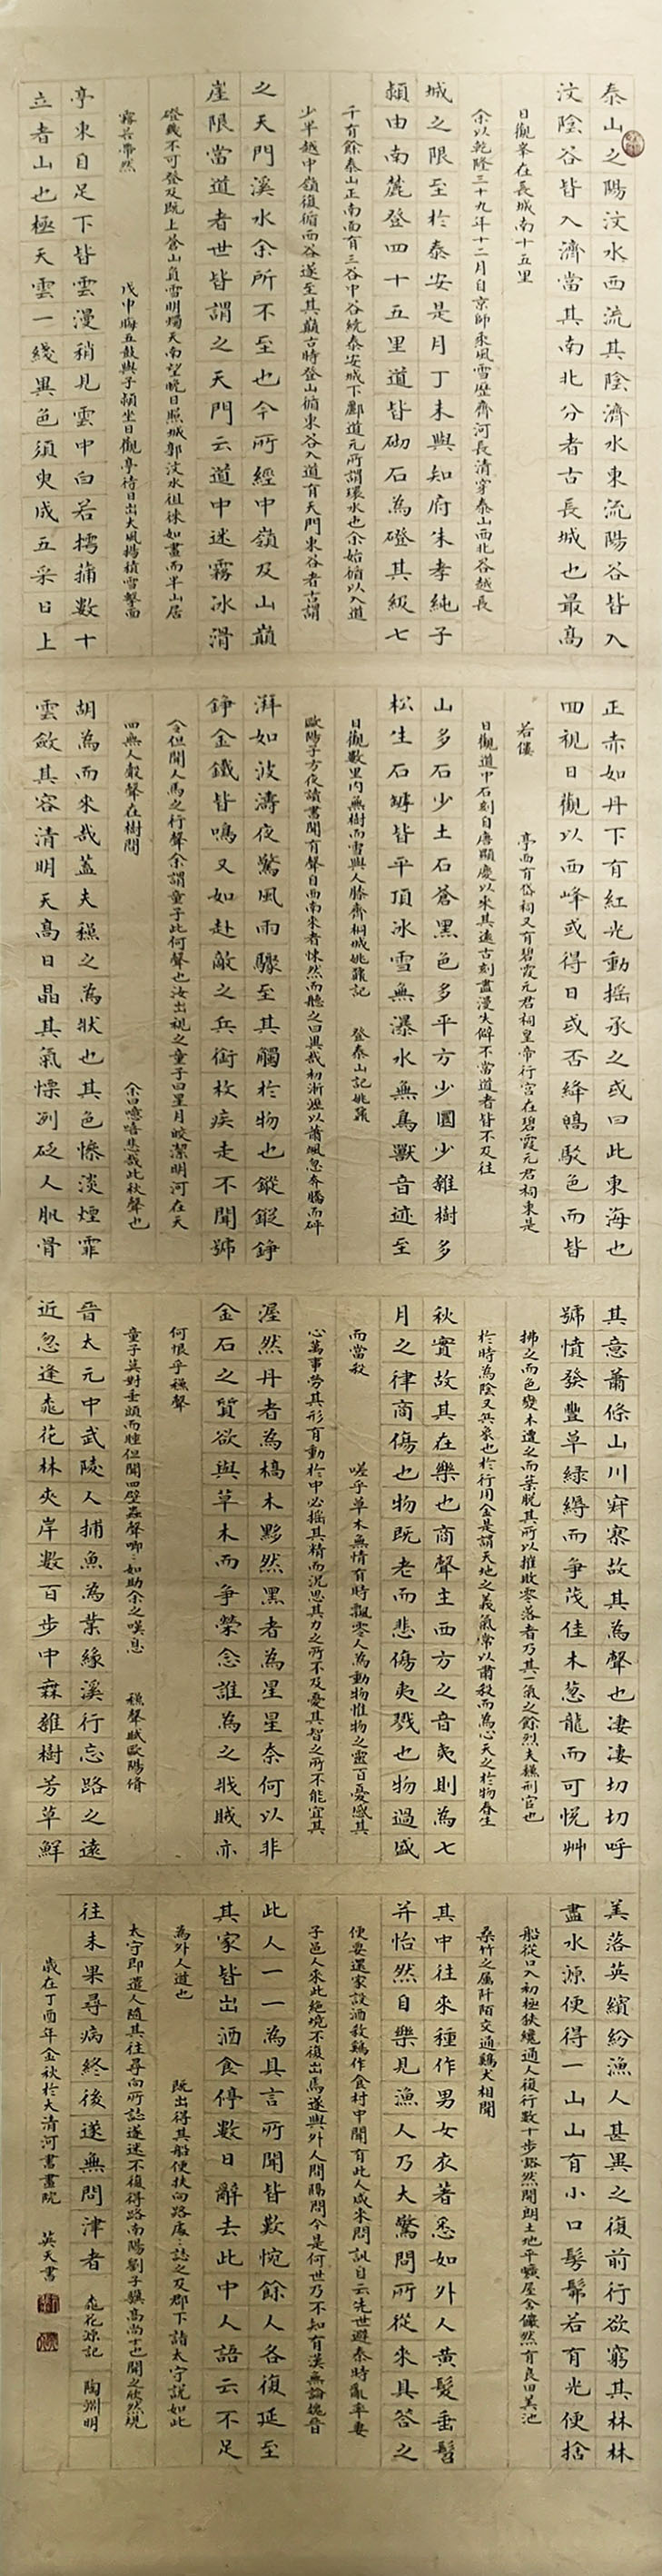 泰山之陽汶水西流其陰濟水東流陽谷皆入
汶陰谷皆入濟當其南北分者古長城也最高
日觀峯在長城南十五里
余以乾隆三十九年十二月自京師乘風雪歷齊河長清穿泰山西北谷越長
城之限至於泰安是月丁未與知府朱孝純子
潁由南麓登四十五里道皆砌石為磴其級七
千有餘泰山正南面有三谷中谷繞泰安城下酈道元所謂環水也余始循以入道
少半越中嶺復循西谷遂至其巔古時登山循東谷入道有天門東谷者古謂
之天門溪水余所不至也今所經中嶺及山巔
崖限當道者世皆謂之天門云道中迷霧冰滑
磴幾不可登及既上蒼山負雪明燭天南望晚日照城郭汶水徂徠如畫而半山居
霧若帶然 戊申晦五鼓與子潁坐日觀亭待日出大風揚積雪擊面
亭東自足下皆雲漫稍見雲中白若摴蒱數十
立者山也極天雲一綫異色須臾成五采日上
正赤如丹下有紅光動搖承之或曰此東海也
回視日觀以西峰或得日或否絳皜駁色而皆
若僂 亭西有岱祠又有碧霞元君祠皇帝行宮在碧霞元君祠東是
日觀道中石刻自唐顯慶以來其遠古刻盡漫失僻不當道者皆不及往
山多石少土石蒼黑色多平方少圜少雜樹多
松生石罅皆平頂冰雪無瀑水無鳥獸音迹至
日觀數里內無樹而雪與人膝齊桐城姚鼐記 登泰山記姚鼐
歐陽子方夜讀書聞有聲自西南來者悚然而聽之曰異哉初淅瀝以蕭颯忽奔騰而砰
湃如波濤夜驚風雨驟至其觸於物也鏦鏦錚
錚金鐵皆鳴又如赴敵之兵銜枚疾走不聞號
令但聞人馬之行聲余謂童子此何聲也汝出視之童子曰星月皎潔明河在天
四無人聲聲在樹間 余曰噫嘻悲哉此秋聲也
胡為而來哉蓋夫穐之為狀也其色慘淡煙霏
雲斂其容清明天高日晶其氣慄冽砭人肌骨
其意蕭條山川寂寥故其為聲也凄凄切切呼
號憤發豐草綠縟而爭茂佳木蔥蘢而可悅艸
拂之而色變木遭之而葉脫其所以摧敗零落者乃其一氣之餘烈夫穐刑官也
於時為陰又兵象也於行用金是謂天地之義氣常以肅殺而為心天之於物春生
秋實故其在樂也商聲主西方之音夷則為七
月之律商傷也物既老而悲傷夷戮也物過盛
而當殺 嗟乎草木無情有時飄零人為動物惟物之靈百憂感其
心萬事勞其形有動於中必搖其精而況思其力之所不及憂其智之所不能宜其
渥然丹者為槁木黟然黑者為星星奈何以非
金石之質欲與草木而爭榮念誰為之戕賊亦
何恨乎穐聲
童子莫對垂頭而睡但聞四壁蟲聲唧唧如助余之嘆息 穐聲賦歐陽脩
晉太元中武陵人捕魚為業緣溪行忘路之遠
近忽逢桃花林夾岸數百步中無雜樹芳草鮮
美落英繽紛漁人甚異之復前行欲窮其林林
盡水源便得一山山有小口髣髴若有光便捨
船從口入初極狹纔通人復行數十步豁然開朗土地平曠屋舍儼然有良田美池
桑竹之屬阡陌交通鷄犬相聞
其中往來種作男女衣著悉如外人黃髮垂髫
并怡然自樂見漁人乃大驚問所從來具答之
便要還家設酒殺鷄作食村中聞有此人咸來問訊自云先世避秦時亂率妻
子邑人來此絕境不復出焉遂與外人間隔問今是何世乃不知有漢無論魏晉
此人一一為具言所聞皆歎惋餘人各復延至
其家皆出酒食停數日辭去此中人語云不足
為外人道也 既出得其船便扶向路處處誌之及郡下詣太守說如此
太守即遣人隨其往尋向所誌遂迷不復得路南陽劉子驥高尚士也聞之欣然規
往未果尋病終後遂無問津者 桃花源記 陶淵明
歲在丁酉年金秋於大清河書畫院 英天書